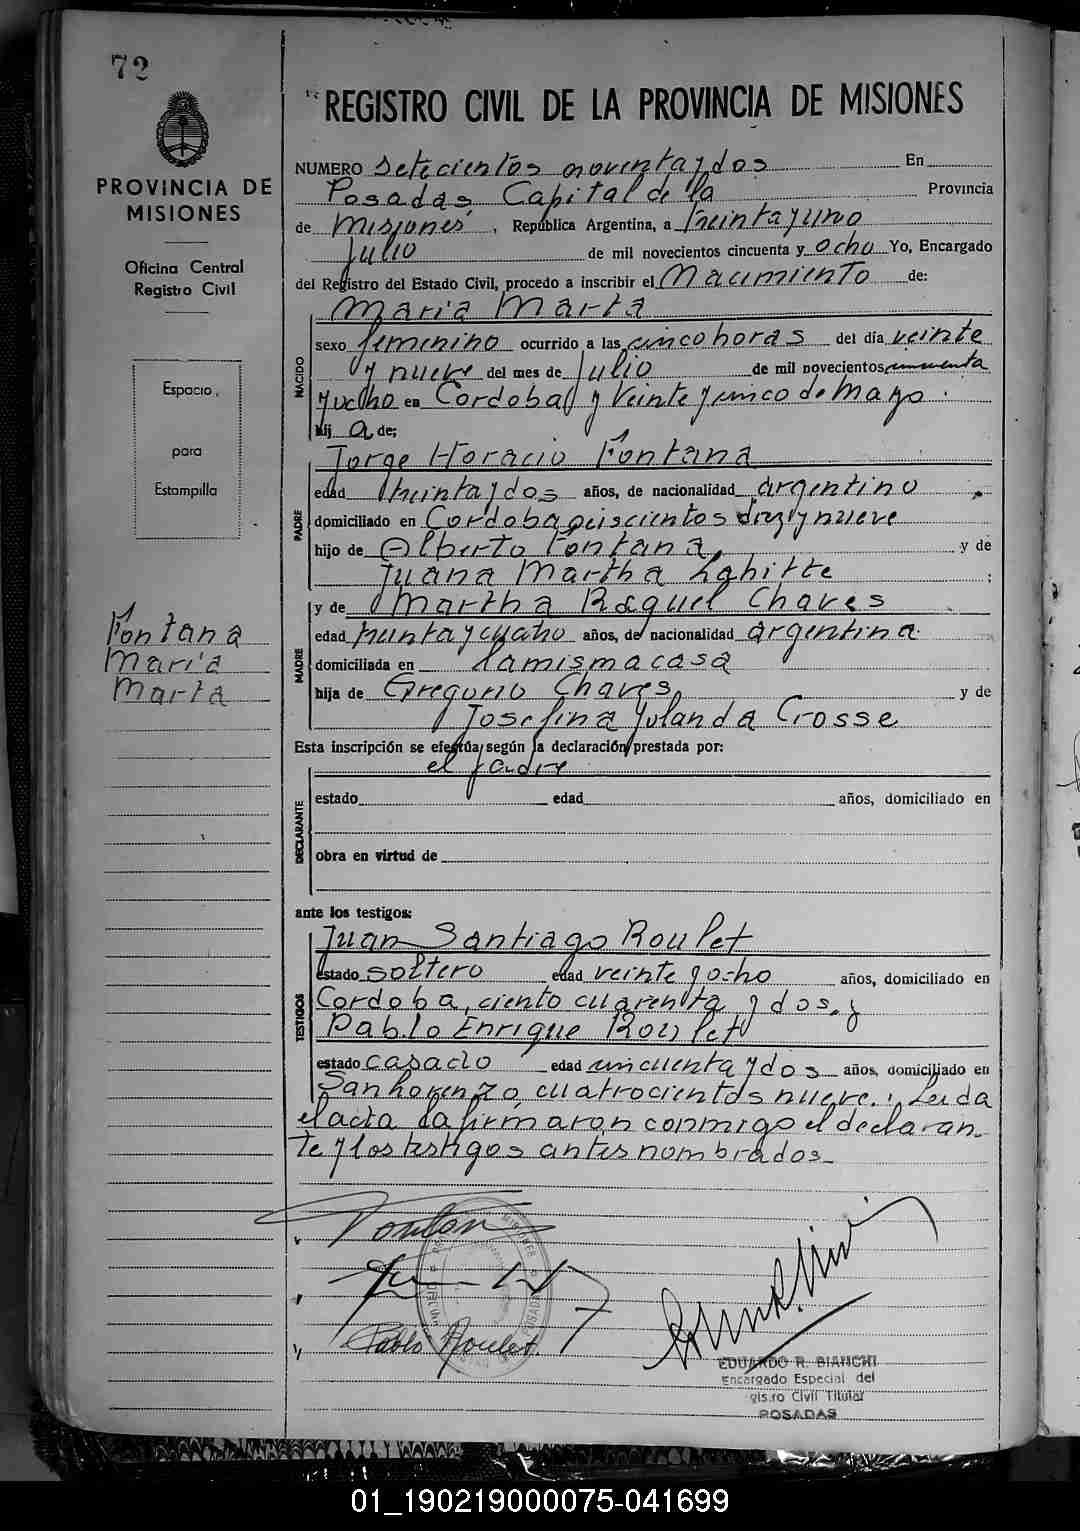 72
PROVINCIA DE
MISIONES
Oficina Central
Registro Civil
Espacio
para
Estampilla
Fontana
Maria
Marta
REGISTRO CIVIL DE LA PROVINCIA DE MISIONES
NUMERO Setecientos noventa y dos En
Posadas, Capital de la Provincia
de Misiones, República Argentina, a treinta y uno
Julio de mil novecientos cincuenta y ocho Yo, Encargado
del Registro del Estado Civil, procedo a inscribir el Nacimiento de:
Maria Marta
NACIDO
sexo femenino ocurrido a las cinco horas del día veinte
y nueve del mes de Julio de mil novecientos cincuenta
y ocho en Cordoba y Veinte y cinco de Mayo.
hij a de:
Jorge Horacio Fontana
PADRE
edad treinta y dos años, de nacionalidad argentino
domiciliado en Cordoba seiscientos diez y nueve
hijo de Alberto Fontana, y de
Juana Martha Lahitte ;
y de Martha Raquel Chaves
MADRE
edad treinta y cuatro años, de nacionalidad argentina
domiciliada en la misma casa
hija de Gregorio Chaves, y de
Josefina Yolanda Crosse
Esta inscripción se efectúa según la declaración prestada por:
el padre
DECLARANTE
estado edad años, domiciliado en
obra en virtud de
ante los testigos:
Juan Santiago Roulet
TESTIGOS
estado soltero edad veinte y ocho años, domiciliado en
Cordoba, ciento cuarenta y dos, y
Pablo Enrique Roulet
estado casado edad cincuenta y dos años, domiciliado en
San Lorenzo, cuatrocientos nueve. Leida
el acta la firmaron conmigo el declaran-
te y los testigos antes nombrados-
Pablo Roulet.
EDUARDO R. BIANCHI
Encargado Especial del
gistro Civil Titular
POSADAS
01_190219000075-041699